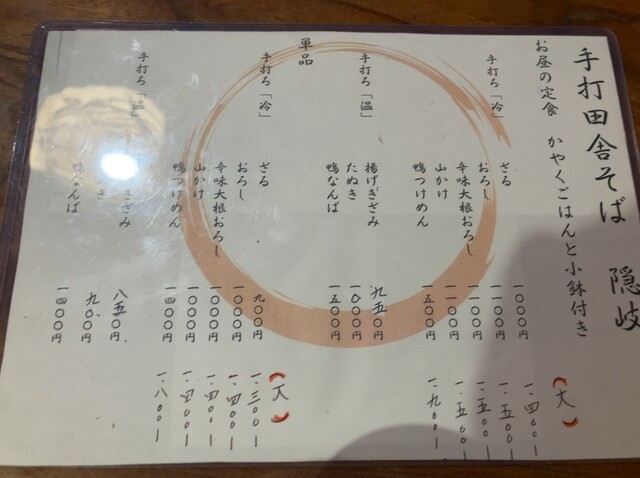 手打田舎そば 隠岐
お昼の定食 かやくごはんと小鉢付き
手打ち「冷」
(大)
ざる 一〇〇〇円 一.四〇〇ー
おろし 一一〇〇円 一.五〇〇ー
辛味大根おろし 一一〇〇円 一.五〇〇ー
山かけ 一一〇〇円 一.五〇〇ー
鴨つけめん 一五〇〇円 一.九〇〇ー
手打ち「温」
揚げきざみ 九五〇円
たぬき 一〇〇〇円
鴨なんば 一五〇〇円
単品
手打ち「冷」
(大)
ざる 九〇〇円 一.三〇〇ー
おろし 一〇〇〇円 一.四〇〇ー
辛味大根おろし 一〇〇〇円 一.四〇〇ー
山かけ 一〇〇〇円 一.四〇〇ー
鴨つけめん 一四〇〇円 一.八〇〇ー
手打ち「温」
きざみ 八五〇円
き 九〇〇円
鴨なんば 一四〇〇円